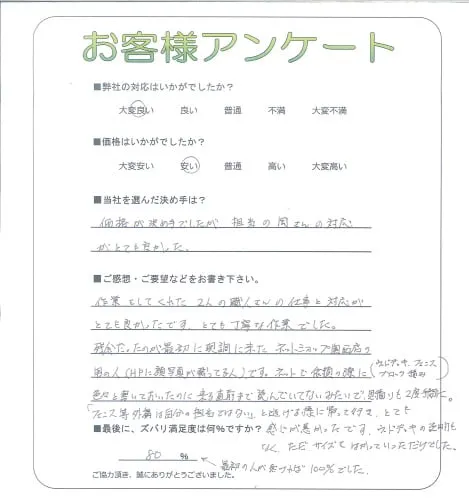 お客様アンケート
■弊社の対応はいかがでしたか?
大変良い 良い 普通 不満 大変不満
■価格はいかがでしたか?
大変安い 安い 普通 高い 大変高い
■当社を選んだ決め手は?
価格が決め手でしたが 担当の岡さんの対応
がとても良かった。
■ご感想・ご要望などをお書き下さい。
作業をしてくれた2人の職人さんの仕事と対応が
とても良かったです。とても丁寧な作業でした。
残念だったのが最初に現調に来たネットショップ関西店の
男の人(HPに顔写真が載ってる人)です。ネットで依頼の際に(ウッドデッキ、フェンス
ブロック塀の
色々と書いておいたのに来る直前まで読んでいないみたいで、見積りも2度手間に。
「フェンス等外構は自分の担当ではない」と逃げる様に帰って行き、とても
■最後に、ズバリ満足度は何%ですか? 感じが悪かったです。ウッドデッキの
なく、ただサイズをはかっていっただけでした。
80 % 最初の人が 100%でした。
ご協力頂き、誠にありがとうございました。